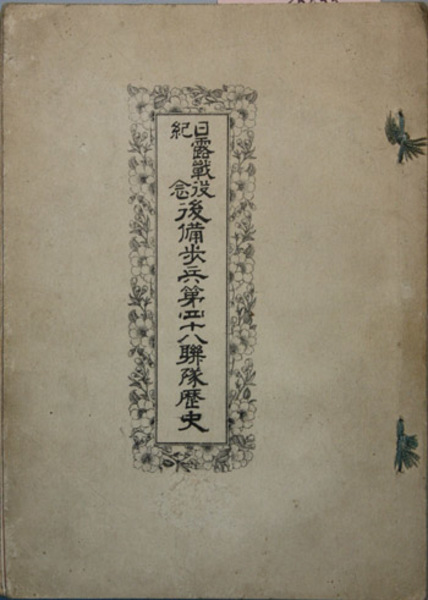 日露戰役
紀念
後備歩兵第四十八聯隊歴史